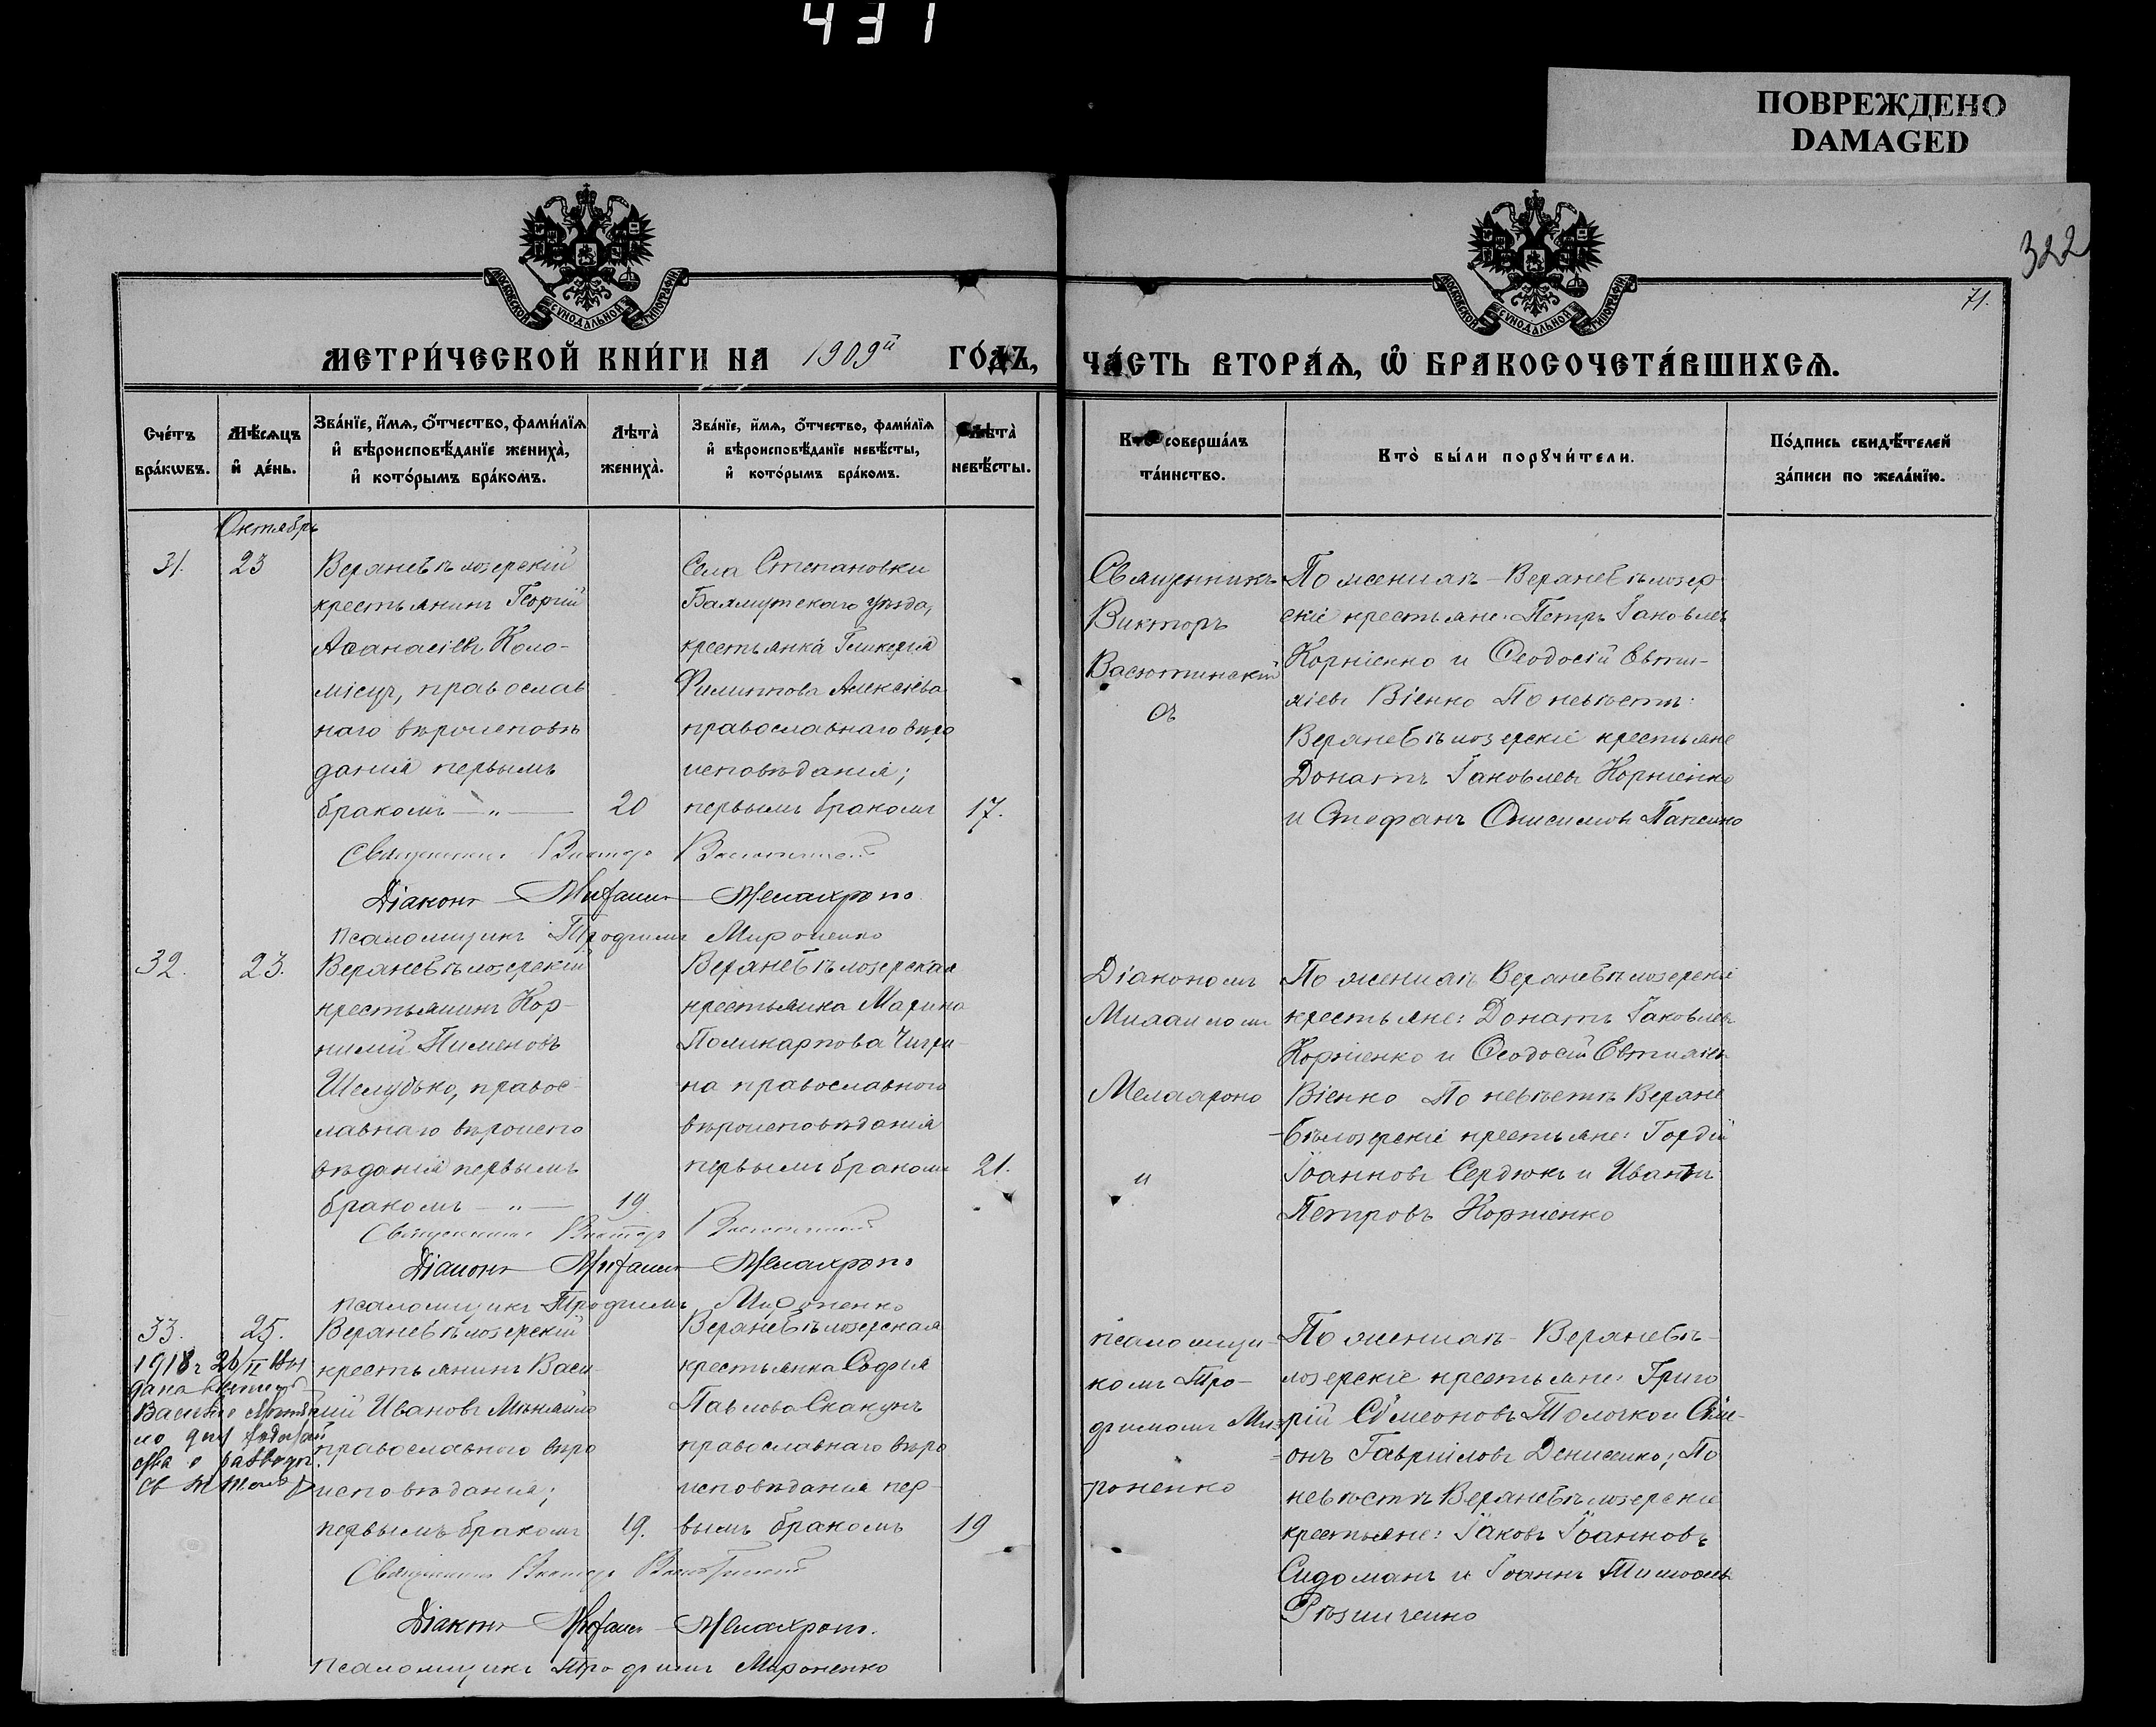 431
ПОВРЕЖДЕНО
DAMAGED
322
71.
МОСКОВСКОЙ СѴНОДАЛЬНОЙ ТИПОГРАФІИ
МОСКОВСКОЙ СѴНОДАЛЬНОЙ ТИПОГРАФІИ
МЕТРИ́ЧЕСКОЙ КНИ́ГИ НА 1909й ГО́ДЪ,
ЧА́СТЬ ВТОРА́Ѧ, Ѽ БРАКОСОЧЕТА́ВШИХСѦ.
Сче́тъ бра́кѡвъ.
Мѣ́сѧцъ и҆ де́нь.
Зва́нїе, и҆́мѧ, ѻ҆́тчество, фами́лїѧ
и҆ вѣроисповѣ́данїе жениха̀,
и҆ кото́рымъ бра́комъ.
Лѣта̀ жениха̀.
Зва́нїе, и҆́мѧ, ѻ҆́тчество, фами́лїѧ
и҆ вѣроисповѣ́данїе невѣ́сты,
и҆ кото́рымъ бра́комъ.
Лѣта̀ невѣ́сты.
Кто̀ соверша́лъ та́инство.
Кто̀ бы́ли порꙋчи́тели.
По́дпись свидѣ́телей
за́писи по жела́нїю.
Октябрь
31.
23
Верхнебѣлозерскій
крестьянинъ Георгій
Аѳанасіевъ Коло-
міецъ, православ
наго вѣроисповѣ
данія первымъ
бракомъ — „ —
20
Села Степановки
Бахмутскаго уѣзда,
крестьянка Гликерія
Филиппова Алексѣева
православнаго вѣро
исповѣданія;
первымъ бракомъ
17.
Священникъ
Викторъ
Васютинскій
съ
По женихѣ - Верхнебѣлозер-
скіе крестьяне: Петръ Іаковлев
Корніенко и Ѳеодосій Евти-
хіевъ Віенко По невѣстѣ:
Верхнебѣлозерскіе крестьяне
Донатъ Іаковлевъ Корніенко
и Стефанъ Онисимовъ
Священникъ Викторъ Васютинскій
Діаконъ Михаилъ Мелахроно
Псаломщикъ Трофимъ Мироненко
32.
23.
Верхнебѣлозерскій
крестьянинъ Кор-
нилій Пименовъ
Шелудько, правос-
лавнаго вѣроиспо
вѣданія первымъ
бракомъ — „ —
19.
Верхнебѣлозерская
крестьянка Марина
Поликарпова Чигри-
на православнаго
вѣроисповѣданія
первымъ бракомъ
21.
Діакономъ
Михаиломъ
Мелахроно
и
По женихѣ Верхнебѣлозерскіе
крестьяне: Донатъ Іаковлевъ
Корніенко и Ѳеодосій Евтихіевъ
Віенко По невѣстѣ Верхне
-бѣлозерскіе крестьяне: Гордій
Іоанновъ Сердюкъ и Иванъ
Петровъ Корніенко
Священникъ Викторъ Васютинскій
Діаконъ Михаилъ Мелахроно
Псаломщикъ Трофимъ Мироненко
33.
25.
1918 г 26/II
дана
Василію
о разводѣ
Верхнебѣлозерскій
крестьянинъ Васи-
лій Ивановъ
православнаго вѣро
исповѣданія;
первымъ бракомъ
19.
Верхнебѣлозерская
крестьянка Софія
Павлова Скакунъ
православнаго вѣро
исповѣданія пер-
вымъ бракомъ
19
псаломщи-
комъ Тро-
фимомъ Ми-
-роненко
По женихѣ - Верхнебѣ-
лозерскіе крестьяне: Григо
рій Сѵмеоновъ Толочко и Сѵме-
-онъ Гавріиловъ Денисенко; По
невѣстѣ Верхнебѣлозерскіе
крестьяне: Іаковъ Іоанновъ
Сидоманъ и Іоаннъ Тимоѳеевъ
Рѣзниченко
Священникъ Викторъ Васютинскій
Діаконъ Михаилъ Мелахроно.
Псаломщикъ Трофимъ Мироненко